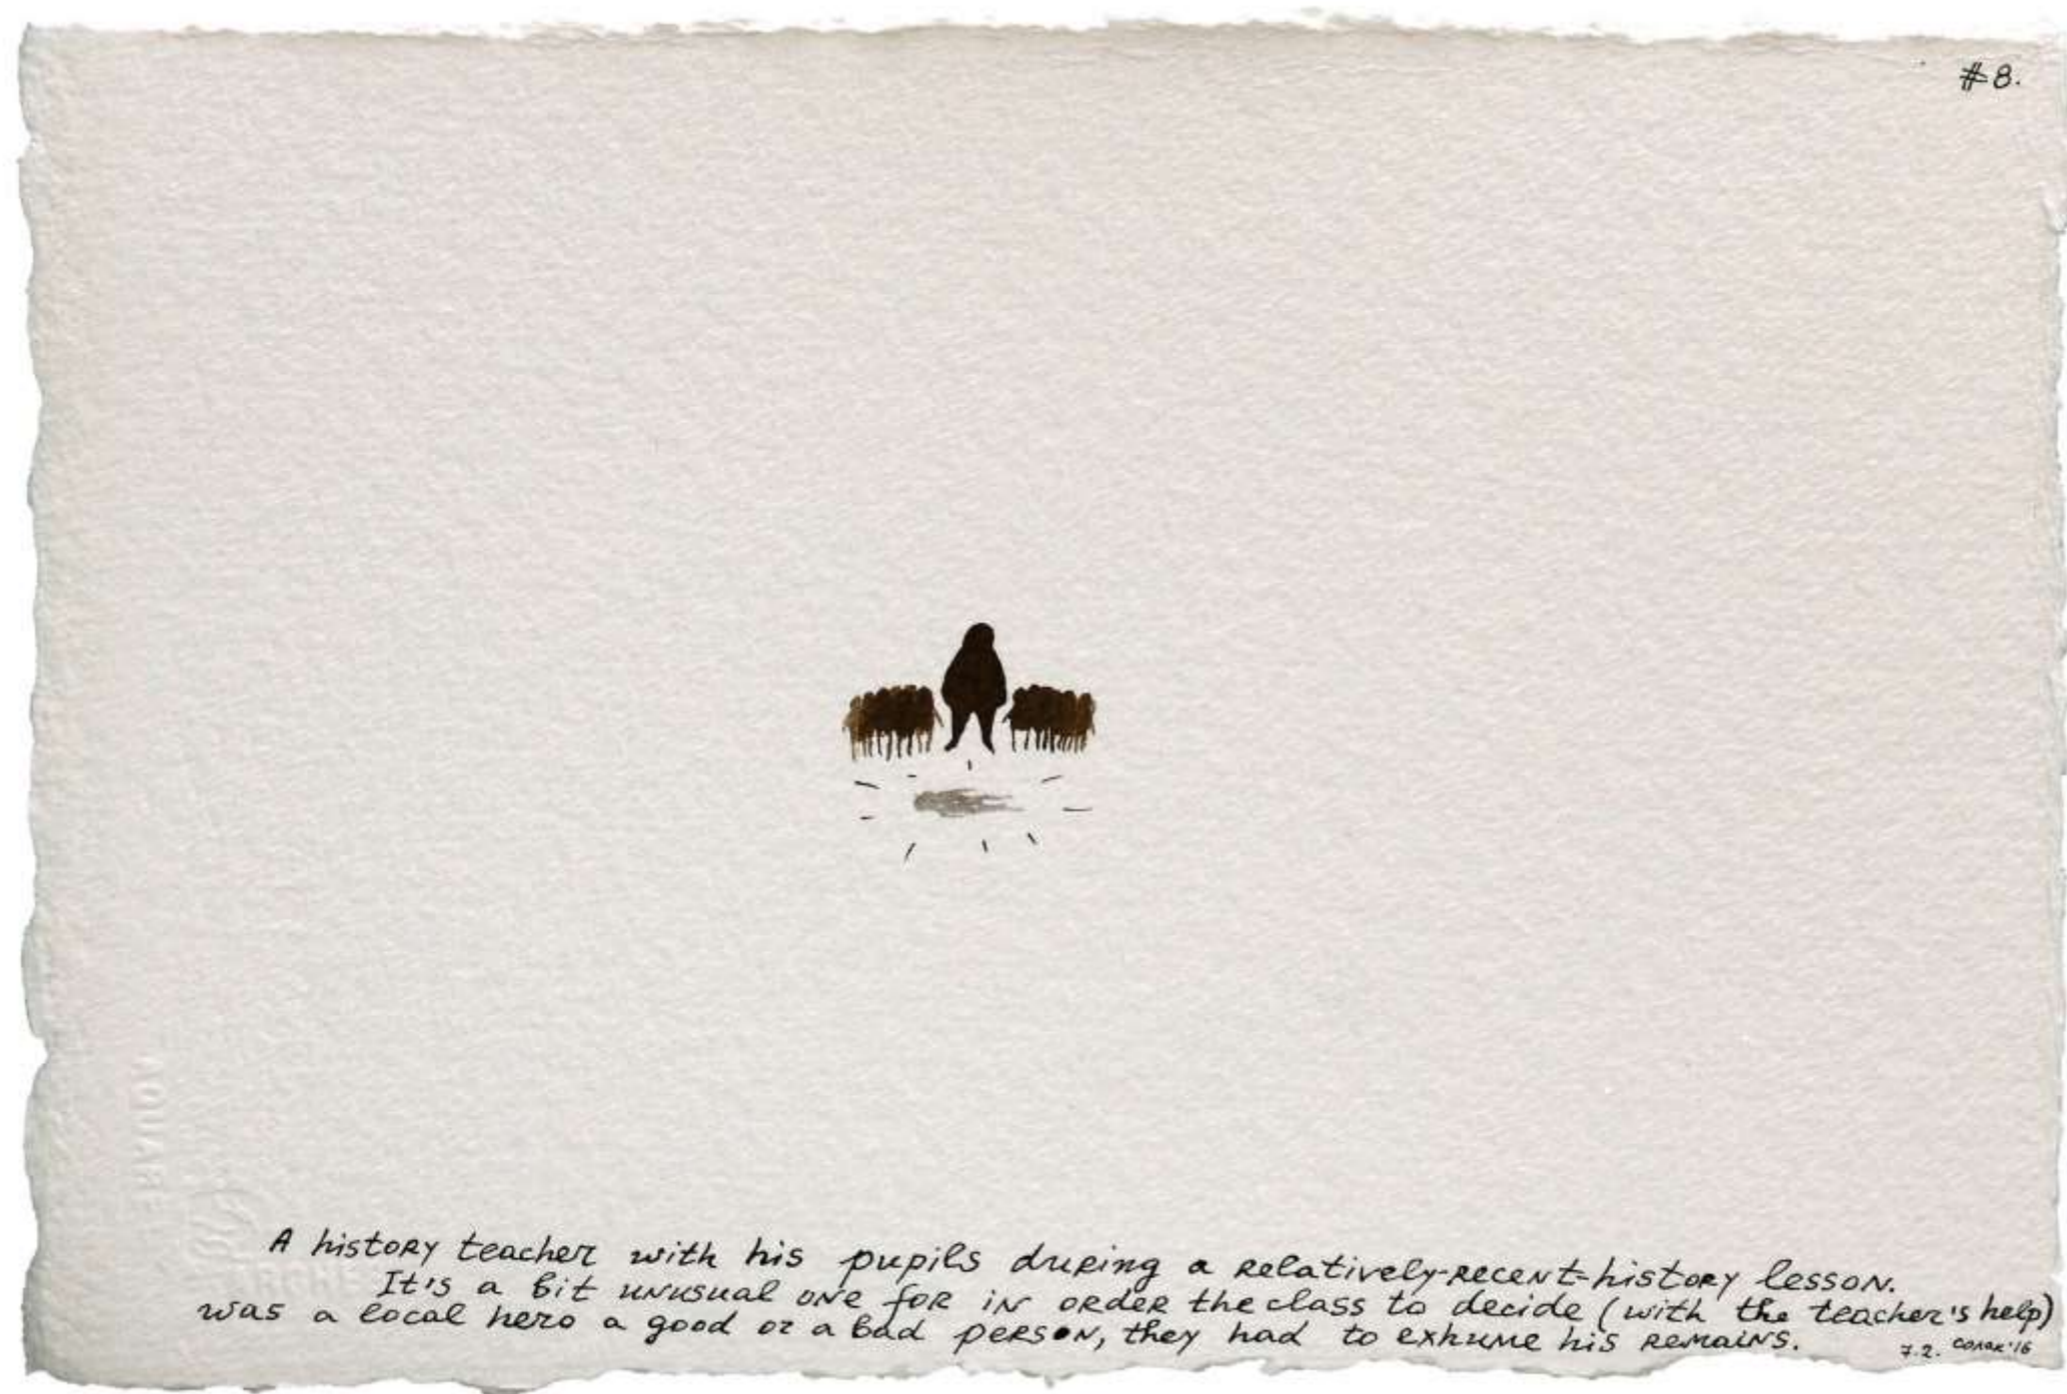 #8.
A history teacher with his pupils during a relatively-recent-history lesson.
It's a bit unusual one for in order the class to decide (with the teacher's help)
was a local hero a good or a bad person, they had to exhume his remains.
7.2. '16